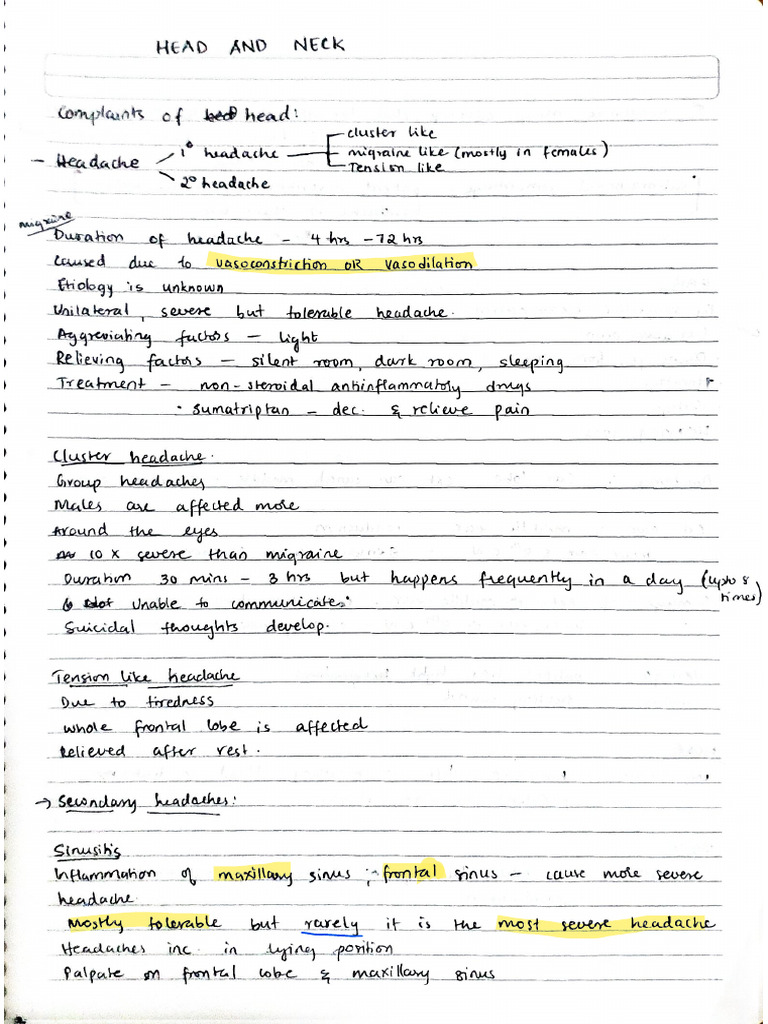 HEAD AND NECK
Complaints of head:
- Headache 1° headache cluster like
migraine like (mostly in females)
Tension like
2° headache
migraine
Duration of headache - 4 hrs - 72 hrs
caused due to vasoconstriction OR vasodilation
Etiology is unknown
Unilateral, severe but tolerable headache.
Aggreviating factors - light
Relieving factors - silent room, dark room, sleeping
Treatment - non-steroidal antiinflammatory drugs
· Sumatriptan - dec. & relieve pain
Cluster headache.
Group headaches
Males are affected more
Around the eyes
10 x severe than migraine
Duration 30 mins - 3 hrs but happens frequently in a day (upto 8 times)
Unable to communicate.
Suicidal thoughts develop.
Tension like headache
Due to tiredness
whole frontal lobe is affected
Relieved after rest.
→ Secondary headaches:
Sinusitis
Inflammation of maxillary sinus, frontal sinus - cause more severe
headache.
Mostly tolerable but rarely it is the most severe headache
Headaches inc. in lying position
Palpate on frontal lobe & maxillary sinus